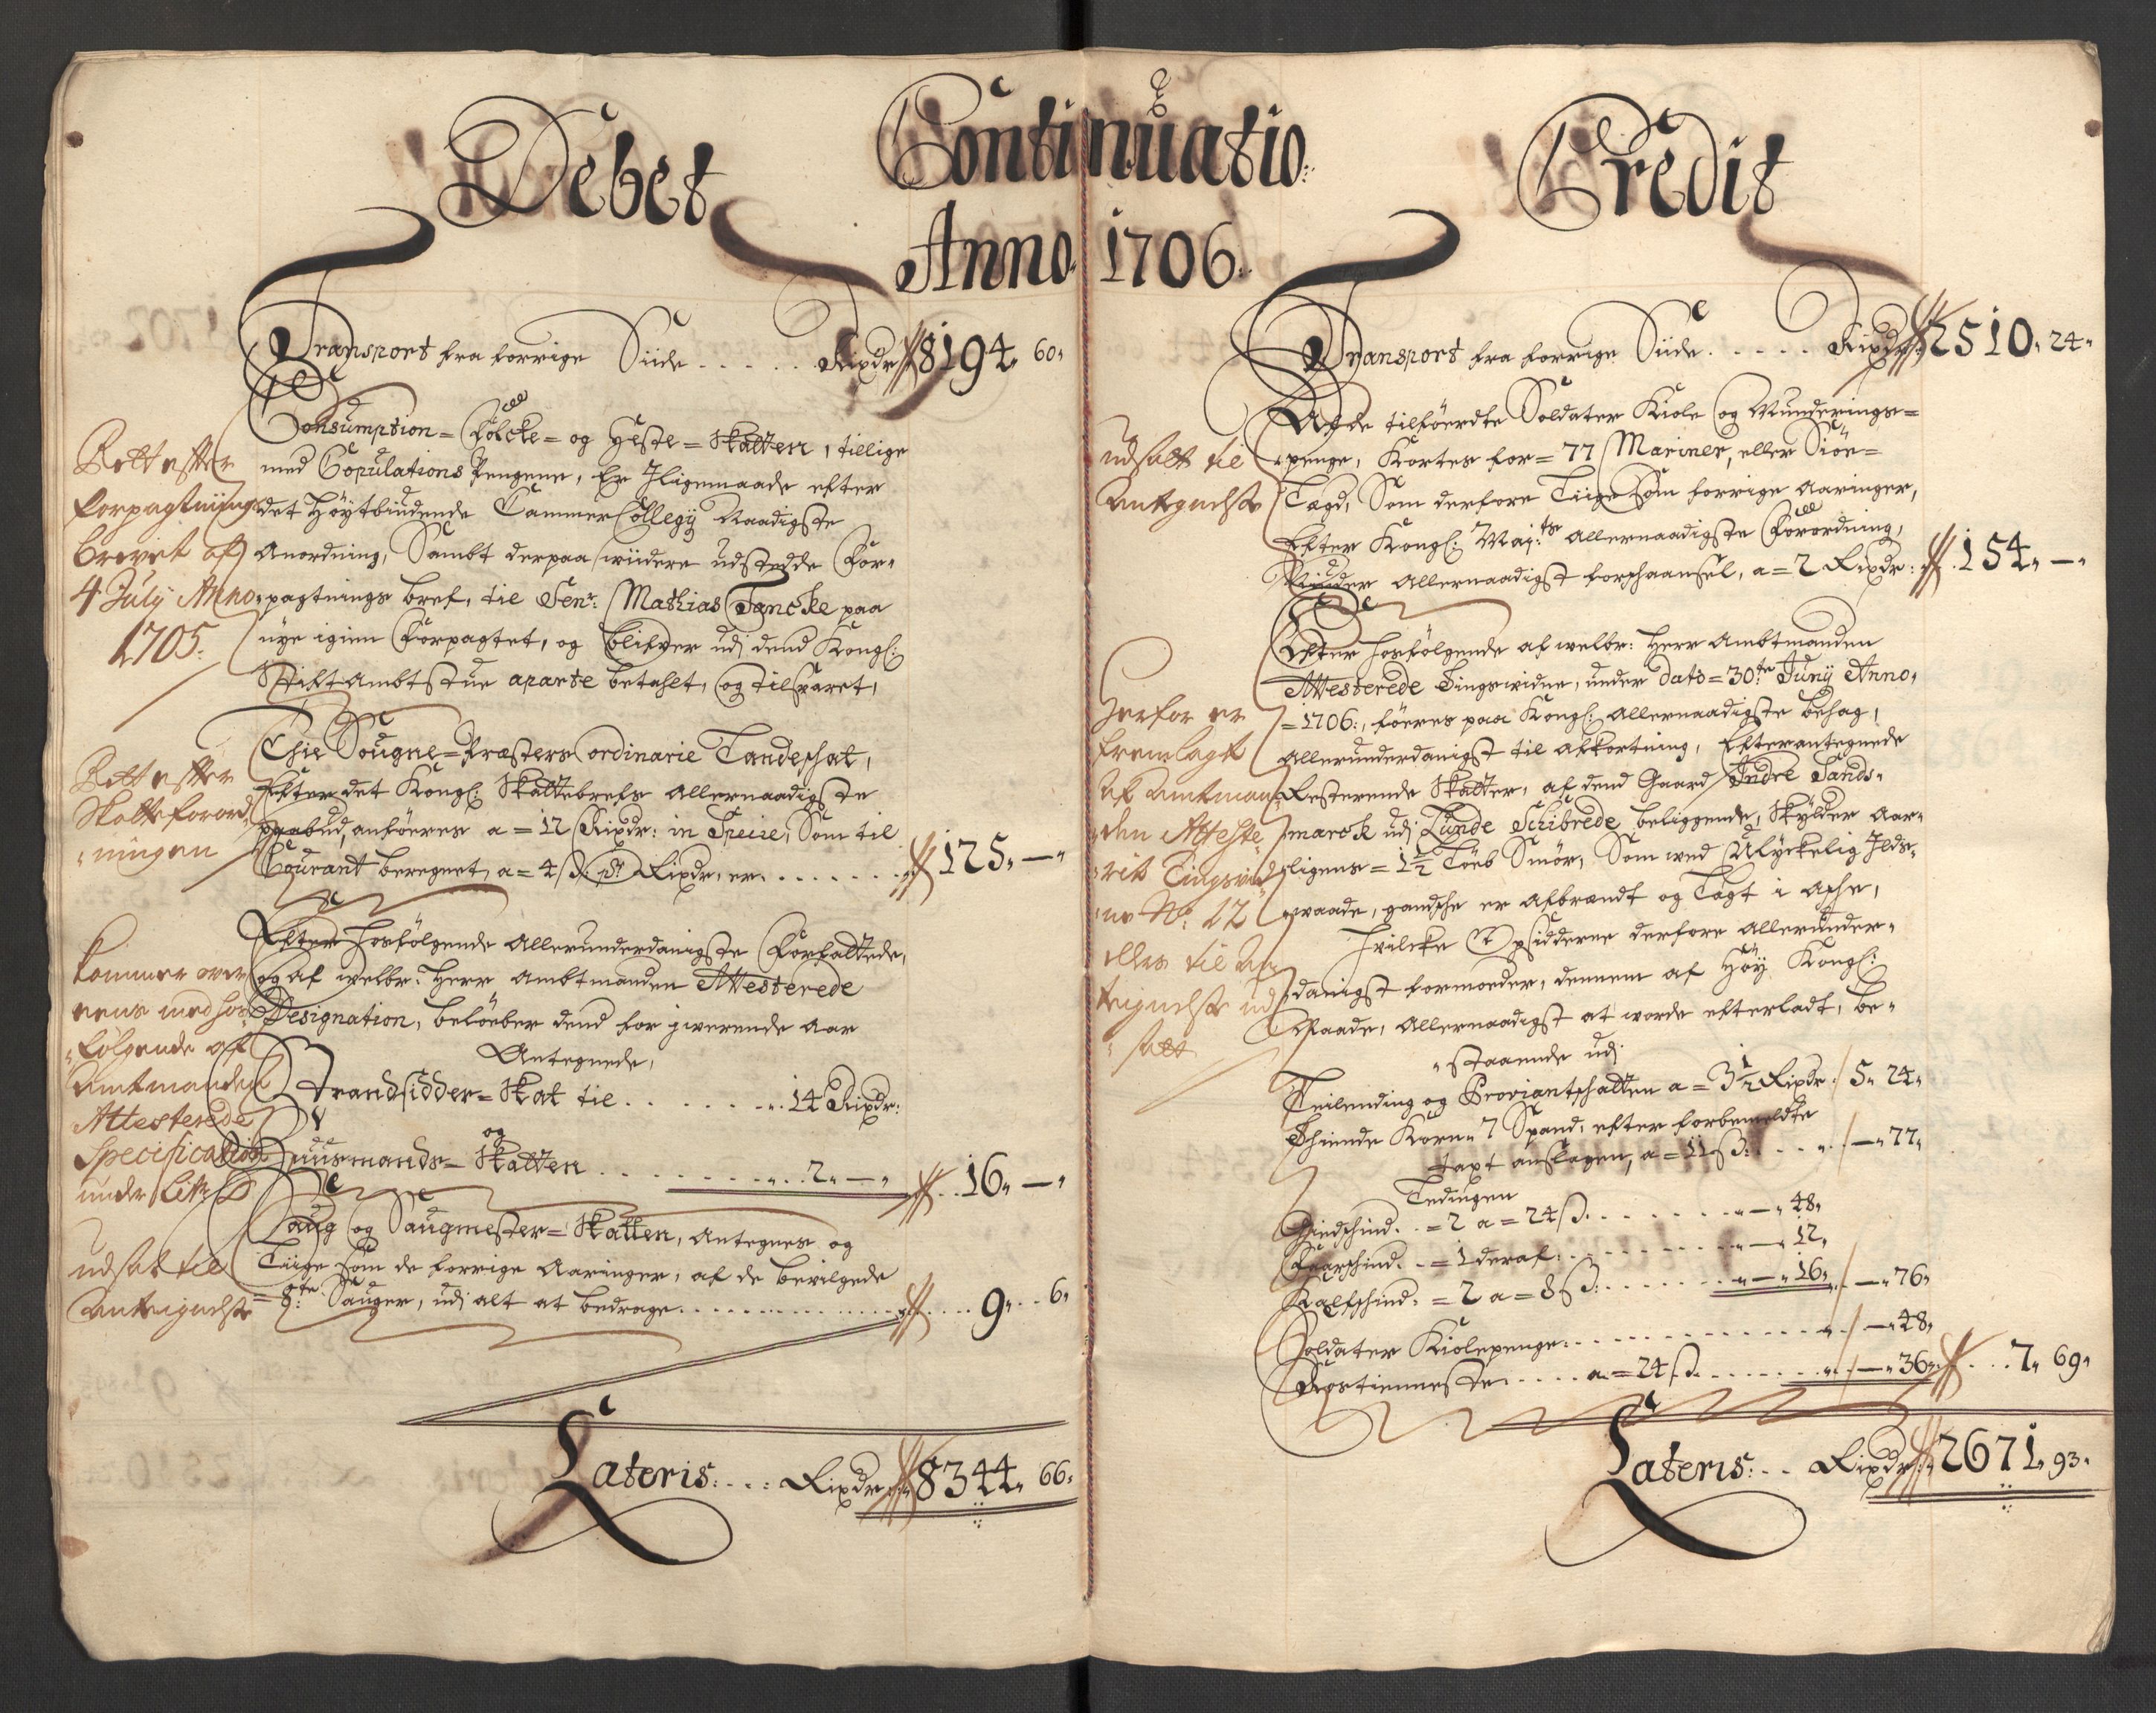 Debet
Continuatio
Credit
Anno 1706
Transport fra forrige Siide ..... Rixdr 8194 „ 60 „
Consumption = Folcke = og Heste = Skatten, tillige
med Copulations Pengene, Er Jligemaade efter
det Høytbiudende Cammer Collegij Naadigste
Anordning, Sambt derpaa wiidere udstedde For„
„pagtnings bref, til Senr: Mathias Tancke paa
nye igien Forpagtet, og blifver udj dend Kongl:
Stiftambtstue aparte betahlt, og tilsvaret,
Rett efter
forpagtnings
brevet af
4 July Anno
1705:
Thie Sougne = Præsters ordinarie Landeschat,
Efter det Kongl: Skattebrefs Allernaadigste
paabud, anføeres a = 12 Rixdr: in Speice, Som til
Courant beregnet, a = 4 ß: pr Rixdr, er ....... 125 „ — „
Rett efter
Skatteforord
„ningen
Efter hosfølgende Allerunderdanigste Forfattede,
og af welbr: Herr Ambtmanden Attesterede
Designation, beløeber dend for jwerende Aar
Antegnede,
Strandsidder = Skat til ....... 14 Rixdr:
og
Huusmands = Skatten ....... 2 „ — „ 16 „ — „
kommer over
eens med hos
„følgende af
Amtmanden
Attesterede
Specification
under Litr: D
Saug og Saugmester = Skatten, Antegnes og
Liige som de forrige Aaringer, af de bevilgede
= 8te Sauger, udj alt at bedrage ....... 9 „ 6 „
udsat til
Antegnelse
Lateris: ... Rixdr: 8344 „ 66 „
Transport fra forrige Siide ..... Rixdr: 2510 „ 24 „
Af de tilføerdte Soldater Kiole og Munderings =
„penge, Kortes for = 77 Mariner, eller Siøe =
Lægd, Som derfore Liige som forrige Aaringer,
Efter Kongl: Maj:ts Allernaadigste Forordning,
Niuder Allernaadigst forschaansel, a = 2 Rixdr: 154 „ — „
udsatt til
Antegnelse
Efter hosfølgende af welbr: Herr Ambtmanden
Attesterede Tingswidne, under dato = 30te Junij Anno„
= 1706:, føeres paa Kongl: Allernaadigste behag,
Allerunderdanigst til afkortning, Efterantegnede
Resterende Skatter, af dend Gaard Indre Sands„
„marck udj Lunde Schibrede beliggende, Skylder Aar„
„ligens = 1 1/2 Løeb Smør, Som wed Ulyckelig Ilds„
„waade, gandsche er Afbrændt og Lagt i Asche,
Hvilcke Opsidderne derfore Allerunder„
„danigst formoeder, dennem af Høy Kongl:
Naade, Allernaadigst at worde efterladt, be„
„staaende udj
Herfor er
fremlagt
Af Amtman
„den Atteste„
„rit Tingsvid
„ne No: 12
ellers til An
tegnelse ud
„satt
Leilending og Proviantschatten a = 3 1/2 Rixdr: 5 „ 24 „
Thiende Korn „ 7 Spand, efter forbemeldte
taxt anslagen, a = 11 ß: .... „ — „ 77 „
Ledingen
Giedschind .. = 2 a = 24 ß ....... „ — „ 48 „
Faarschind .. = 1 deraf: ....... „ — „ 12 „
Kalfschind. = 2 a = 8 ß: ....... „ — „ 16 „ — „ 76 „
Soldater Kiolepenge: ....... „ — „ 48 „
Rostienneste .... a = 24 ß ....... „ — „ 36 „ 7 „ 69 „
Lateris: .. Rixdr: 2671 „ 93 „